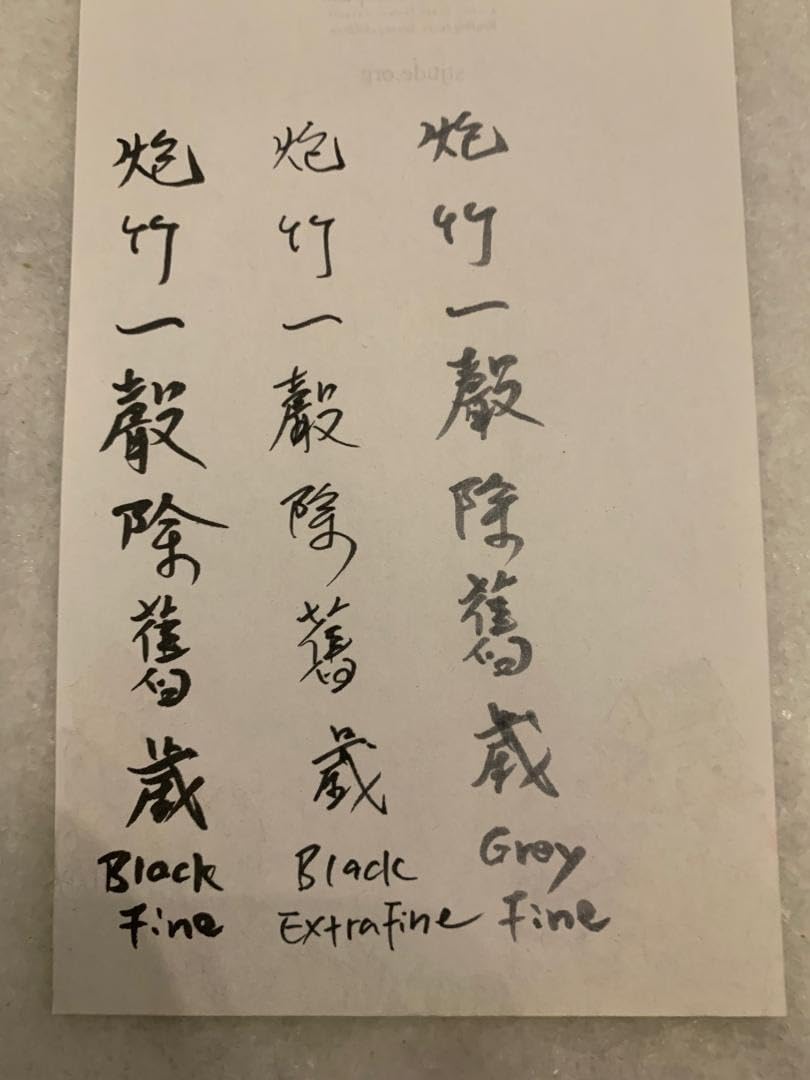 炮竹一聲除舊歲
Black Fine
炮竹一聲除舊歲
Black Extra Fine
炮竹一聲除舊歲
Grey Fine
stjude.org